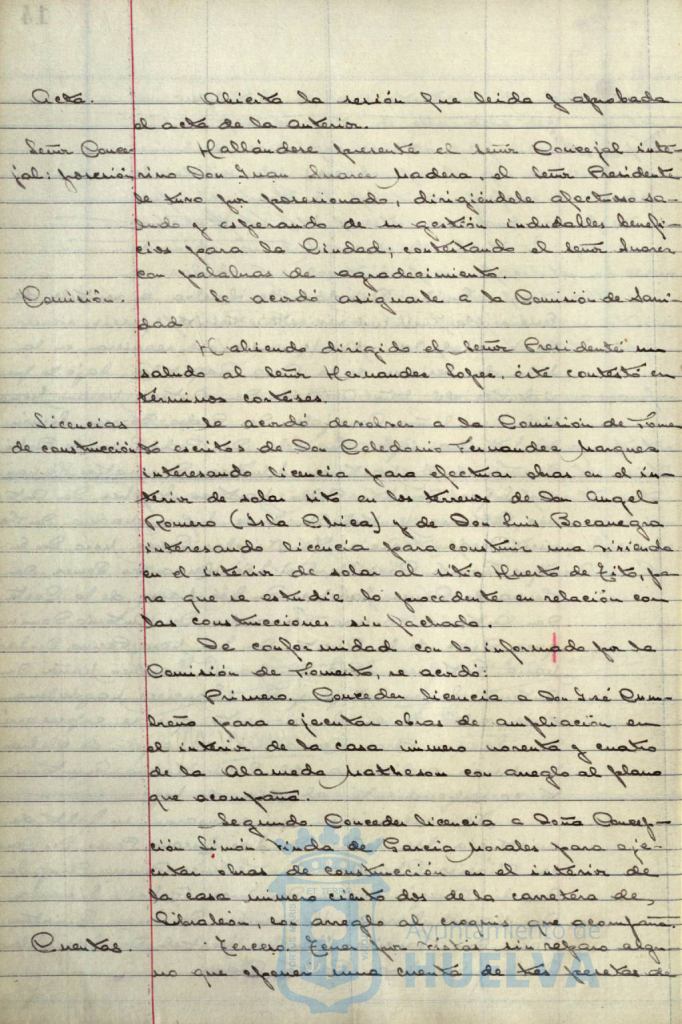 Acta. Abierta la sesión fue leida y aprobada
el acta de la anterior.
Señor Conce- Hallándose presente el señor Concejal inte-
jal: posesión rino Don Juan Suarez Madera, el Señor Presidente
le tuvo por posesionado, dirigiéndole afectuoso sa-
ludo y esperando de su gestión indudables benefi-
cios para la Ciudad; contestando el señor Suarez
con palabras de agradecimiento.
Comisión. Se acordó asignarle a la Comisión de Sani-
dad
Habiendo dirigido el Señor Presidente un
saludo al Señor Hernandez Lopez, éste contestó en
términos corteses.
Licencias Se acordó devolver a la Comisión de Fomen
de construcción to escritos de Don Celedonio Fernandez Marquez
interesando licencia para efectuar obras en el in-
terior de solar sito en los terrenos de Don Angel
Romero (Isla Chica) y de Don Luis Bocanegra
interesando licencia para construir una vivienda
en el interior de solar al sitio Huerto de Tito, pa-
ra que se estudie lo procedente en relación con
las construcciones sin fachada.
De conformidad con lo informado por la
Comisión de Fomento, se acordó:
Primero. Conceder licencia a Don José Cum-
breño para ejecutar obras de ampliación en
el interior de la casa número noventa y cuatro
de la Alameda Matheson con arreglo al plano
que acompaña.
Segundo. Conceder licencia a Doña Concep-
ción Simón Viuda de Garcia Morales para eje-
cutar obras de construcción en el interior de
la casa número ciento dos de la carretera de
Gibraleón, con arreglo al croquis que acompaña.
Cuentas. Tercero. Tener por vistas sin reparo algu-
no que oponer una cuenta de tres pesetas de
Ayuntamiento de
HUELVA